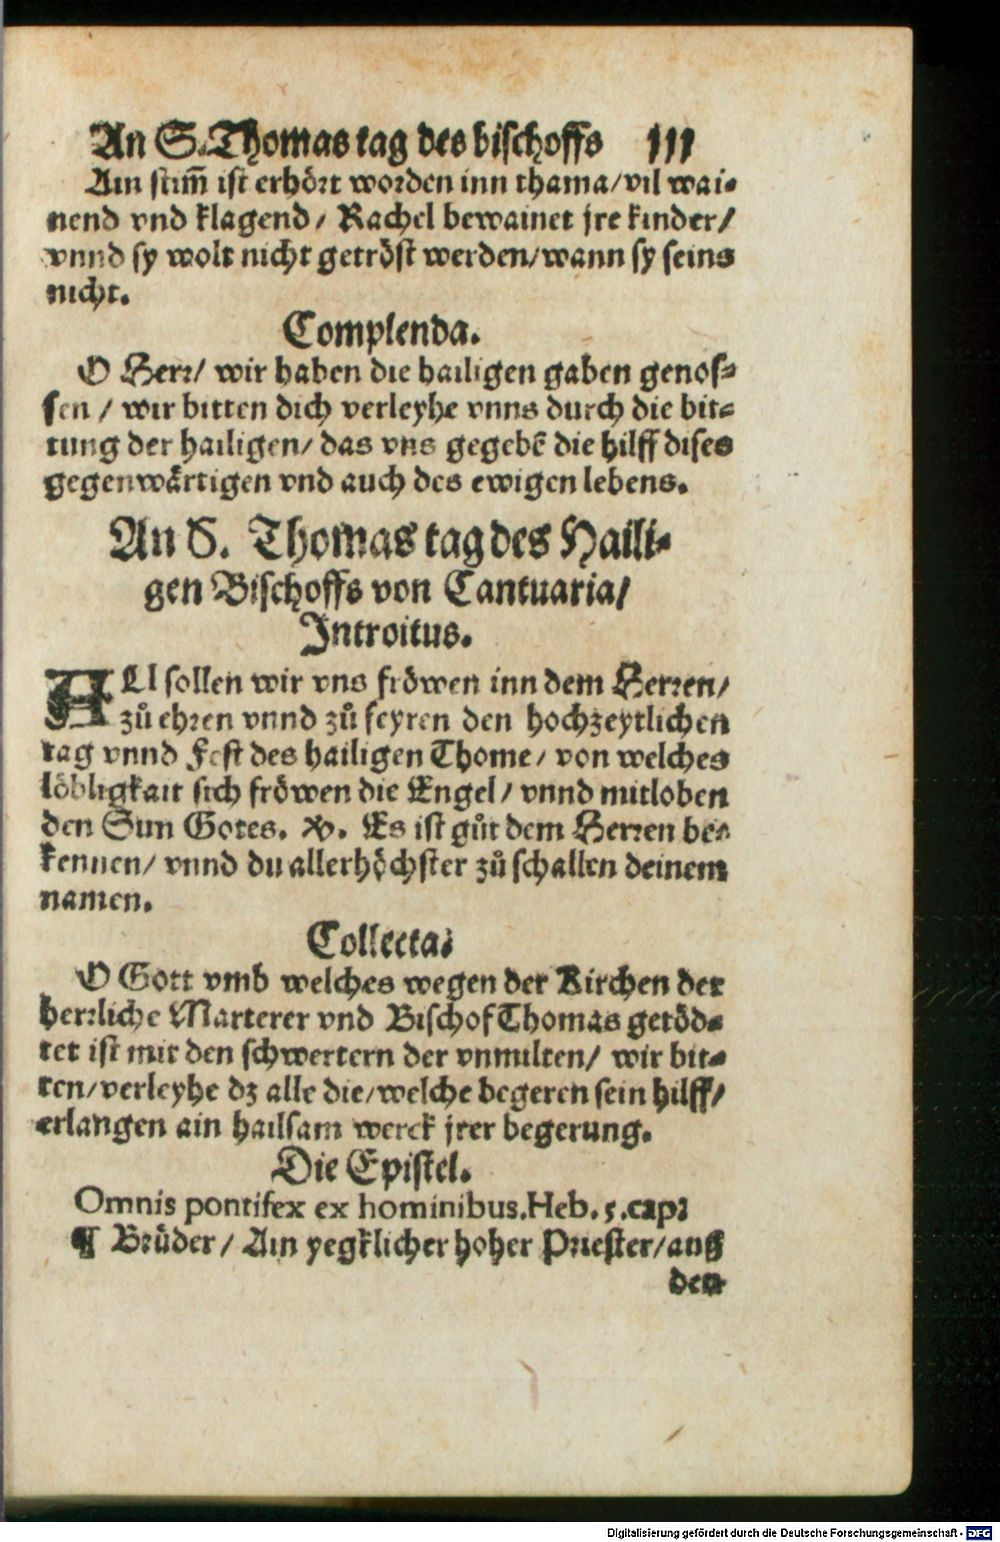 An S. Thomas tag des bischoffs 111
Ain stim̄ ist erhört worden inn thama/vil wai-
nend vnd klagend/ Rachel bewainet jre kinder/
vnnd sy wolt nicht getröst werden/wann sy seins
nicht.
Complenda.
O Herr/ wir haben die hailigen gaben genos-
sen / wir bitten dich verleyhe vnns durch die bit-
tung der hailigen/ das vns gegebē die hilff dises
gegenwärtigen vnd auch des ewigen lebens.
An S. Thomas tag des Haili-
gen Bischoffs von Cantuaria/
Introitus.
ALl sollen wir vns fröwen inn dem Herren/
zů ehren vnnd zů feyren den hochzeytlichen
tag vnnd Fest des hailigen Thome/ von welches
löbligkait sich fröwen die Engel/ vnnd mitloben
den Sun Gotes. ꝟ. Es ist gůt dem Herren be-
kennen/ vnnd du allerhöchster zů schallen deinem
namen.
Collecta.
O Gott vmb welches wegen der Kirchen der
herrliche Marterer vnd Bischof Thomas getöd-
tet ist mit den schwertern der vnmilten/ wir bit-
ten/verleyhe dz alle die/welche begeren sein hilff/
erlangen ain hailsam werck jrer begerung.
Die Epistel.
Omnis pontifex ex hominibus. Heb. 5. cap.
¶ Brůder/ Ain yegklicher hoher Priester/auß
den
Digitalisierung gefördert durch die Deutsche Forschungsgemeinschaft - DFG